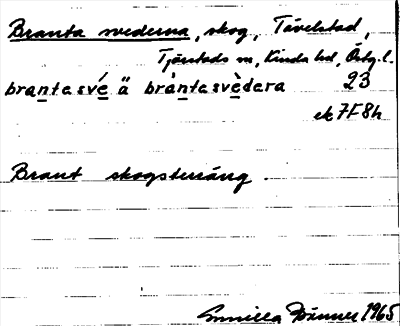 Branta svederna, skog, Tävelstad,
Tjärstads sn, Kinda hd, Östg.l.
brantasvé ä bràntasvèdara 23
ek 7F8h
Brant skogsterräng.
Gunilla 1965